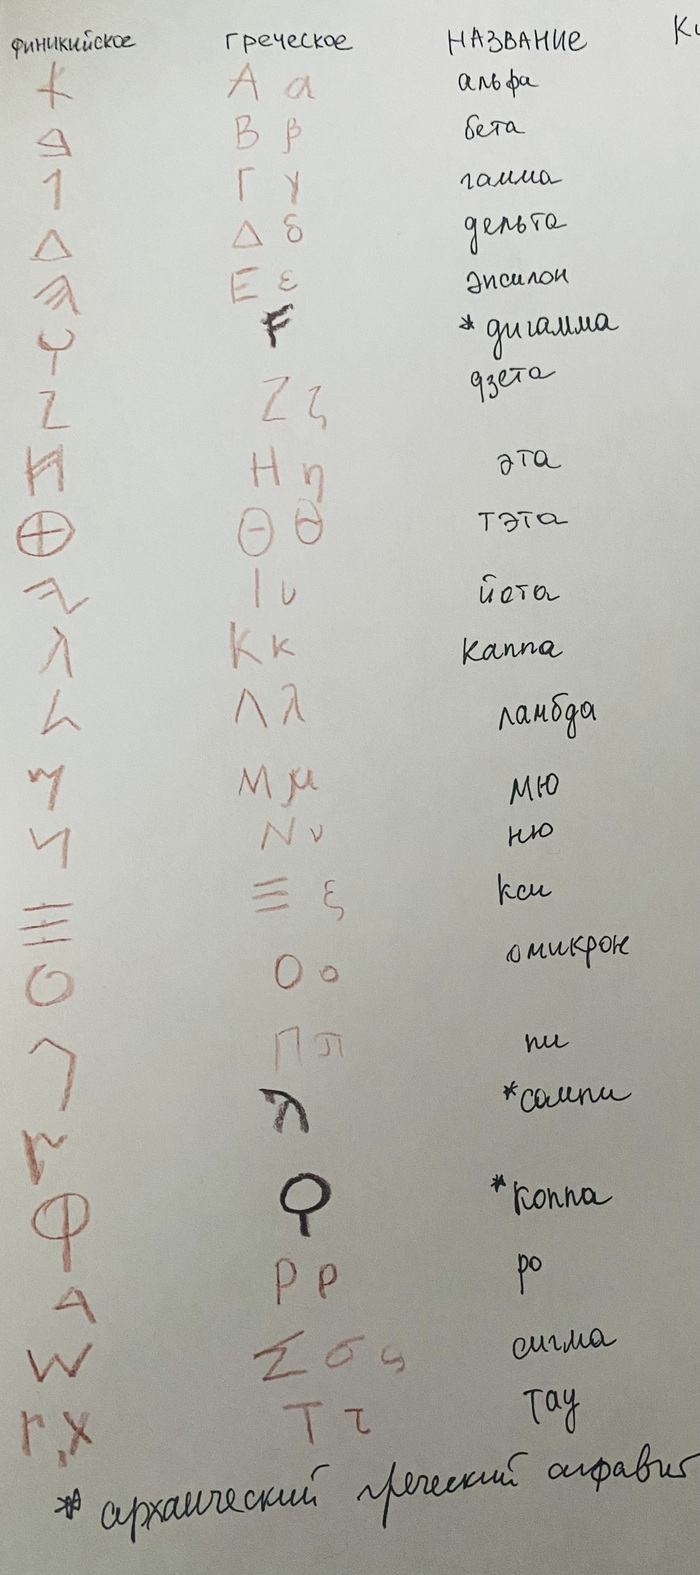 финикийское греческое НАЗВАНИЕ Ки
𐤀 Α α альфа
𐤁 Β β бета
𐤂 Γ γ гамма
𐤃 Δ δ дельта
𐤄 Ε ε эпсилон
𐤅 Ϝ * дигамма
𐤆 Ζ ζ дзета
𐤇 Η η эта
𐤈 Θ θ тэта
𐤉 Ι ι йота
𐤊 Κ κ каппа
𐤋 Λ λ ламбда
𐤌 Μ μ мю
𐤍 Ν ν ню
𐤎 Ξ ξ кси
𐤏 Ο ο омикрон
𐤐 Π π пи
𐤑 Ϡ *сампи
𐤒 Ϙ *коппа
𐤓 Ρ ρ ро
𐤔 Σ σ ς сигма
𐤕 Τ τ тау
* архаический греческий алфавит